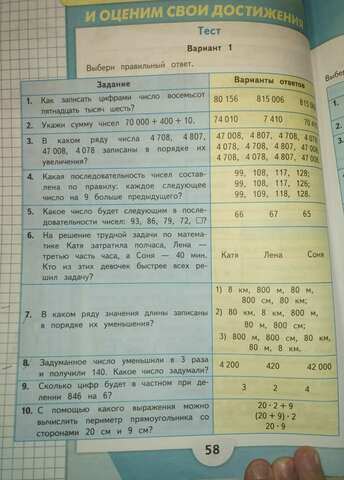 И ОЦЕНИМ СВОИ ДОСТИЖЕНИЯ
Тест
Вариант 1
Выбери правильный ответ.
Задание
Варианты ответов
1. Как записать цифрами число восемьсот
пятнадцать тысяч шесть?
80 156 815 006
2. Укажи сумму чисел 70 000 + 400 + 10.
74 010 7 410
3. В каком ряду числа 4 708, 4 807,
47 008, 4 078 записаны в порядке их
увеличения?
47 008, 4 807, 4 708, 4 078
4 078, 4 708, 4 807, 47 008
4 708, 4 078, 4 807, 47 008
4. Какая последовательность чисел состав-
лена по правилу: каждое следующее
число на 9 больше предыдущего?
99, 108, 117, 128;
99, 108, 117, 126;
99, 109, 118, 128.
5. Какое число будет следующим в после-
довательности чисел: 93, 86, 79, 72, □?
66 67 65
6. На решение трудной задачи по матема-
тике Катя затратила полчаса, Лена —
третью часть часа, а Соня — 40 мин.
Кто из этих девочек быстрее всех ре-
шил задачу?
Катя Лена Соня
7. В каком ряду значения длины записаны
в порядке их уменьшения?
1) 8 км, 800 м, 80 м,
800 см, 80 км;
2) 80 км, 8 км, 800 м,
80 м, 800 см;
3) 800 м, 800 см, 80 км,
80 м, 8 км.
8. Задуманное число уменьшили в 3 раза
и получили 140. Какое число задумали?
4 200 420 42 000
9. Сколько цифр будет в частном при де-
лении 846 на 6?
3 2 4
10. С помощью какого выражения можно
вычислить периметр прямоугольника со
сторонами 20 см и 9 см?
20 · 2 + 9
(20 + 9) · 2
20 · 9
58